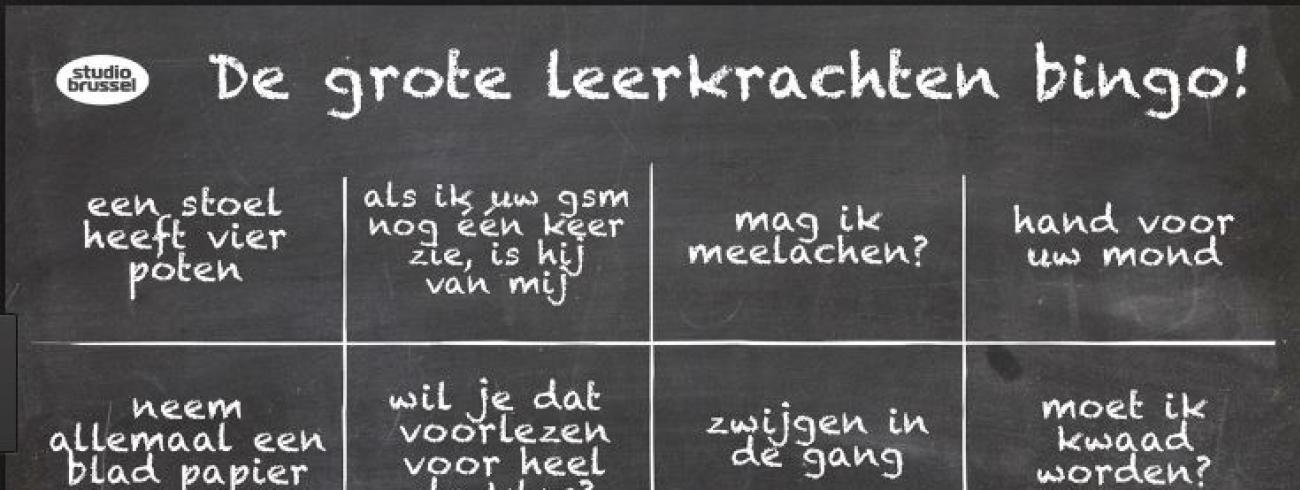 studio
brussel
De grote leerkrachten bingo!
een stoel
heeft vier
poten
als ik uw gsm
nog één keer
zie, is hij
van mij
mag ik
meelachen?
hand voor
uw mond
neem
allemaal een
blad papier
wil je dat
voorlezen
voor heel
zwijgen in
de gang
moet ik
kwaad
worden?